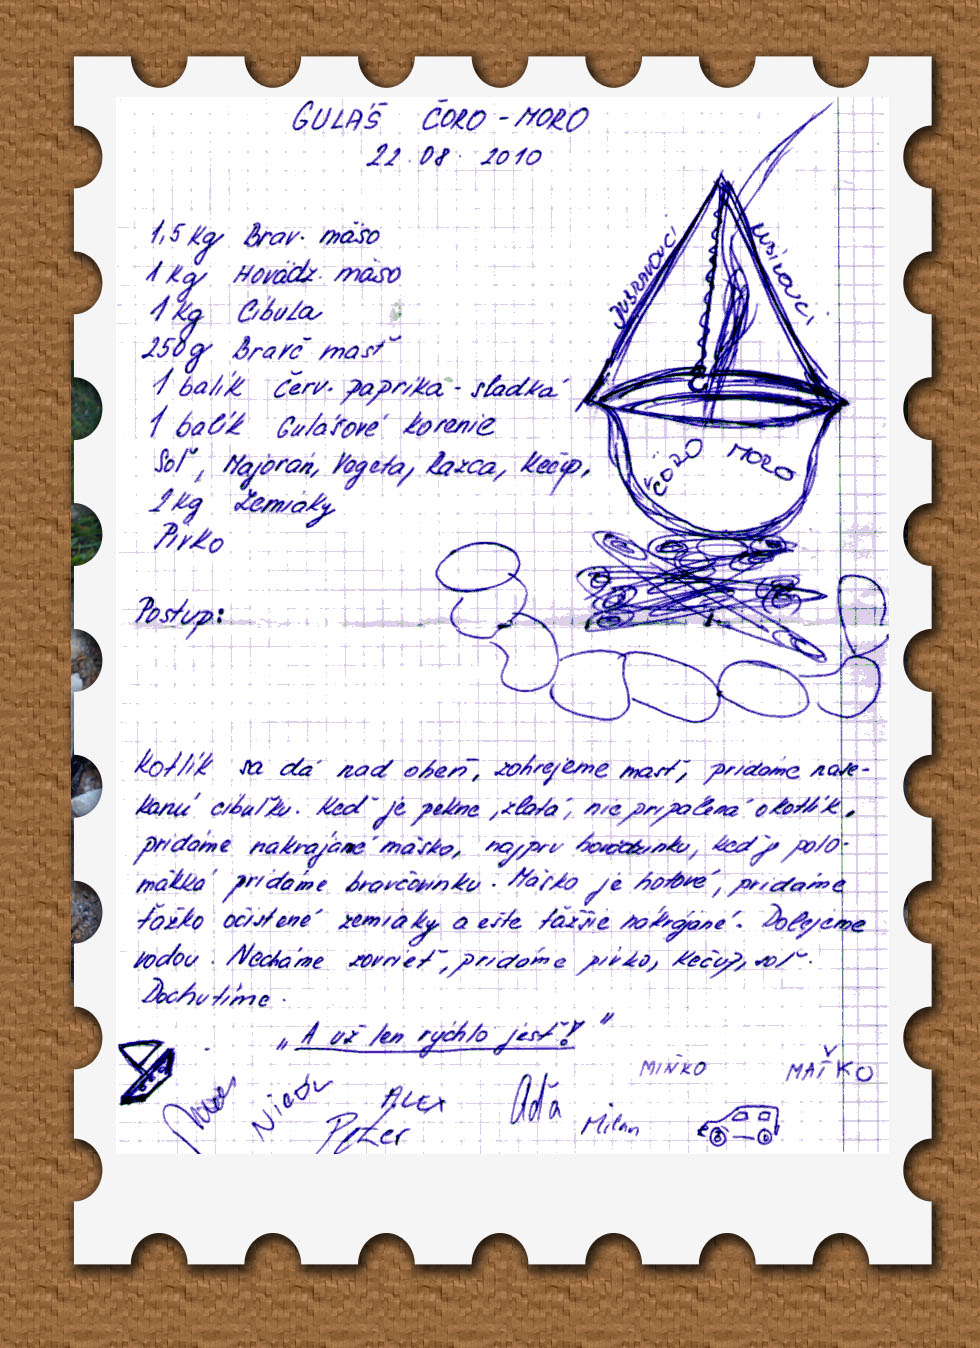 GULÁŠ ČORO - MORO
22. 08. 2010
1,5 Kg Brav. mäso
1 Kg Hovädz. mäso
1 Kg Cibuľa
250 g Bravč masť
1 balík Červ. paprika - sladká
1 balík Gulášové korenie
Soľ, Majorán, Vegeta, Rasca, Kečup,
2 Kg Zemiaky
Pivko
DUBRAVOVCI
ČORO MORO
Postup:
Kotlík sa dá nad oheň, zohrejeme masť, pridáme nase-
kanú cibuľku. Keď je pekne, zlatá, nie pripálená o kotlík,
pridáme nakrájané mäsko, najprv hovädzinku, keď je polo-
mäkká pridáme bravčovinku. Mäsko je hotové, pridáme
ťažko očistené zemiaky a ešte ťažšie nakrájané. Dolejeme
vodou. Necháme zovrieť, pridáme pivko, Kečup, soľ.
Dochutíme.
„A už len rýchlo jesť!"
MIŇKO MAŤKO
ALEX
Peter
Aďa
Milan